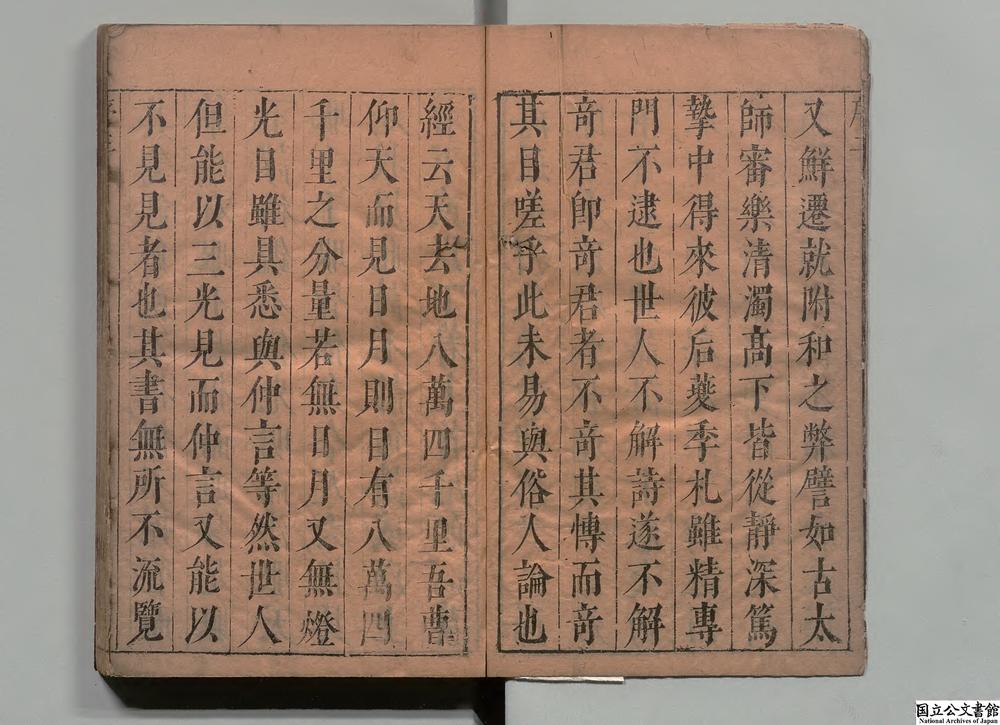 又鮮遷就附和之弊譬如古太
師審樂清濁髙下皆從靜深篤
摯中得來彼后夔季札雖精專
門不逮也世人不解詩遂不解
奇君卽奇君者不奇其慱而奇
其目嗟乎此未易與俗人論也
經云天去地八萬四千里吾曹
仰天而見日月則目有八萬四
千里之分量若無日月又無燈
光目雖具悉與仲言等然世人
但能以三光見而仲言又能以
不見見者也其書無所不流覽
国立公文書館
National Archives of Japan